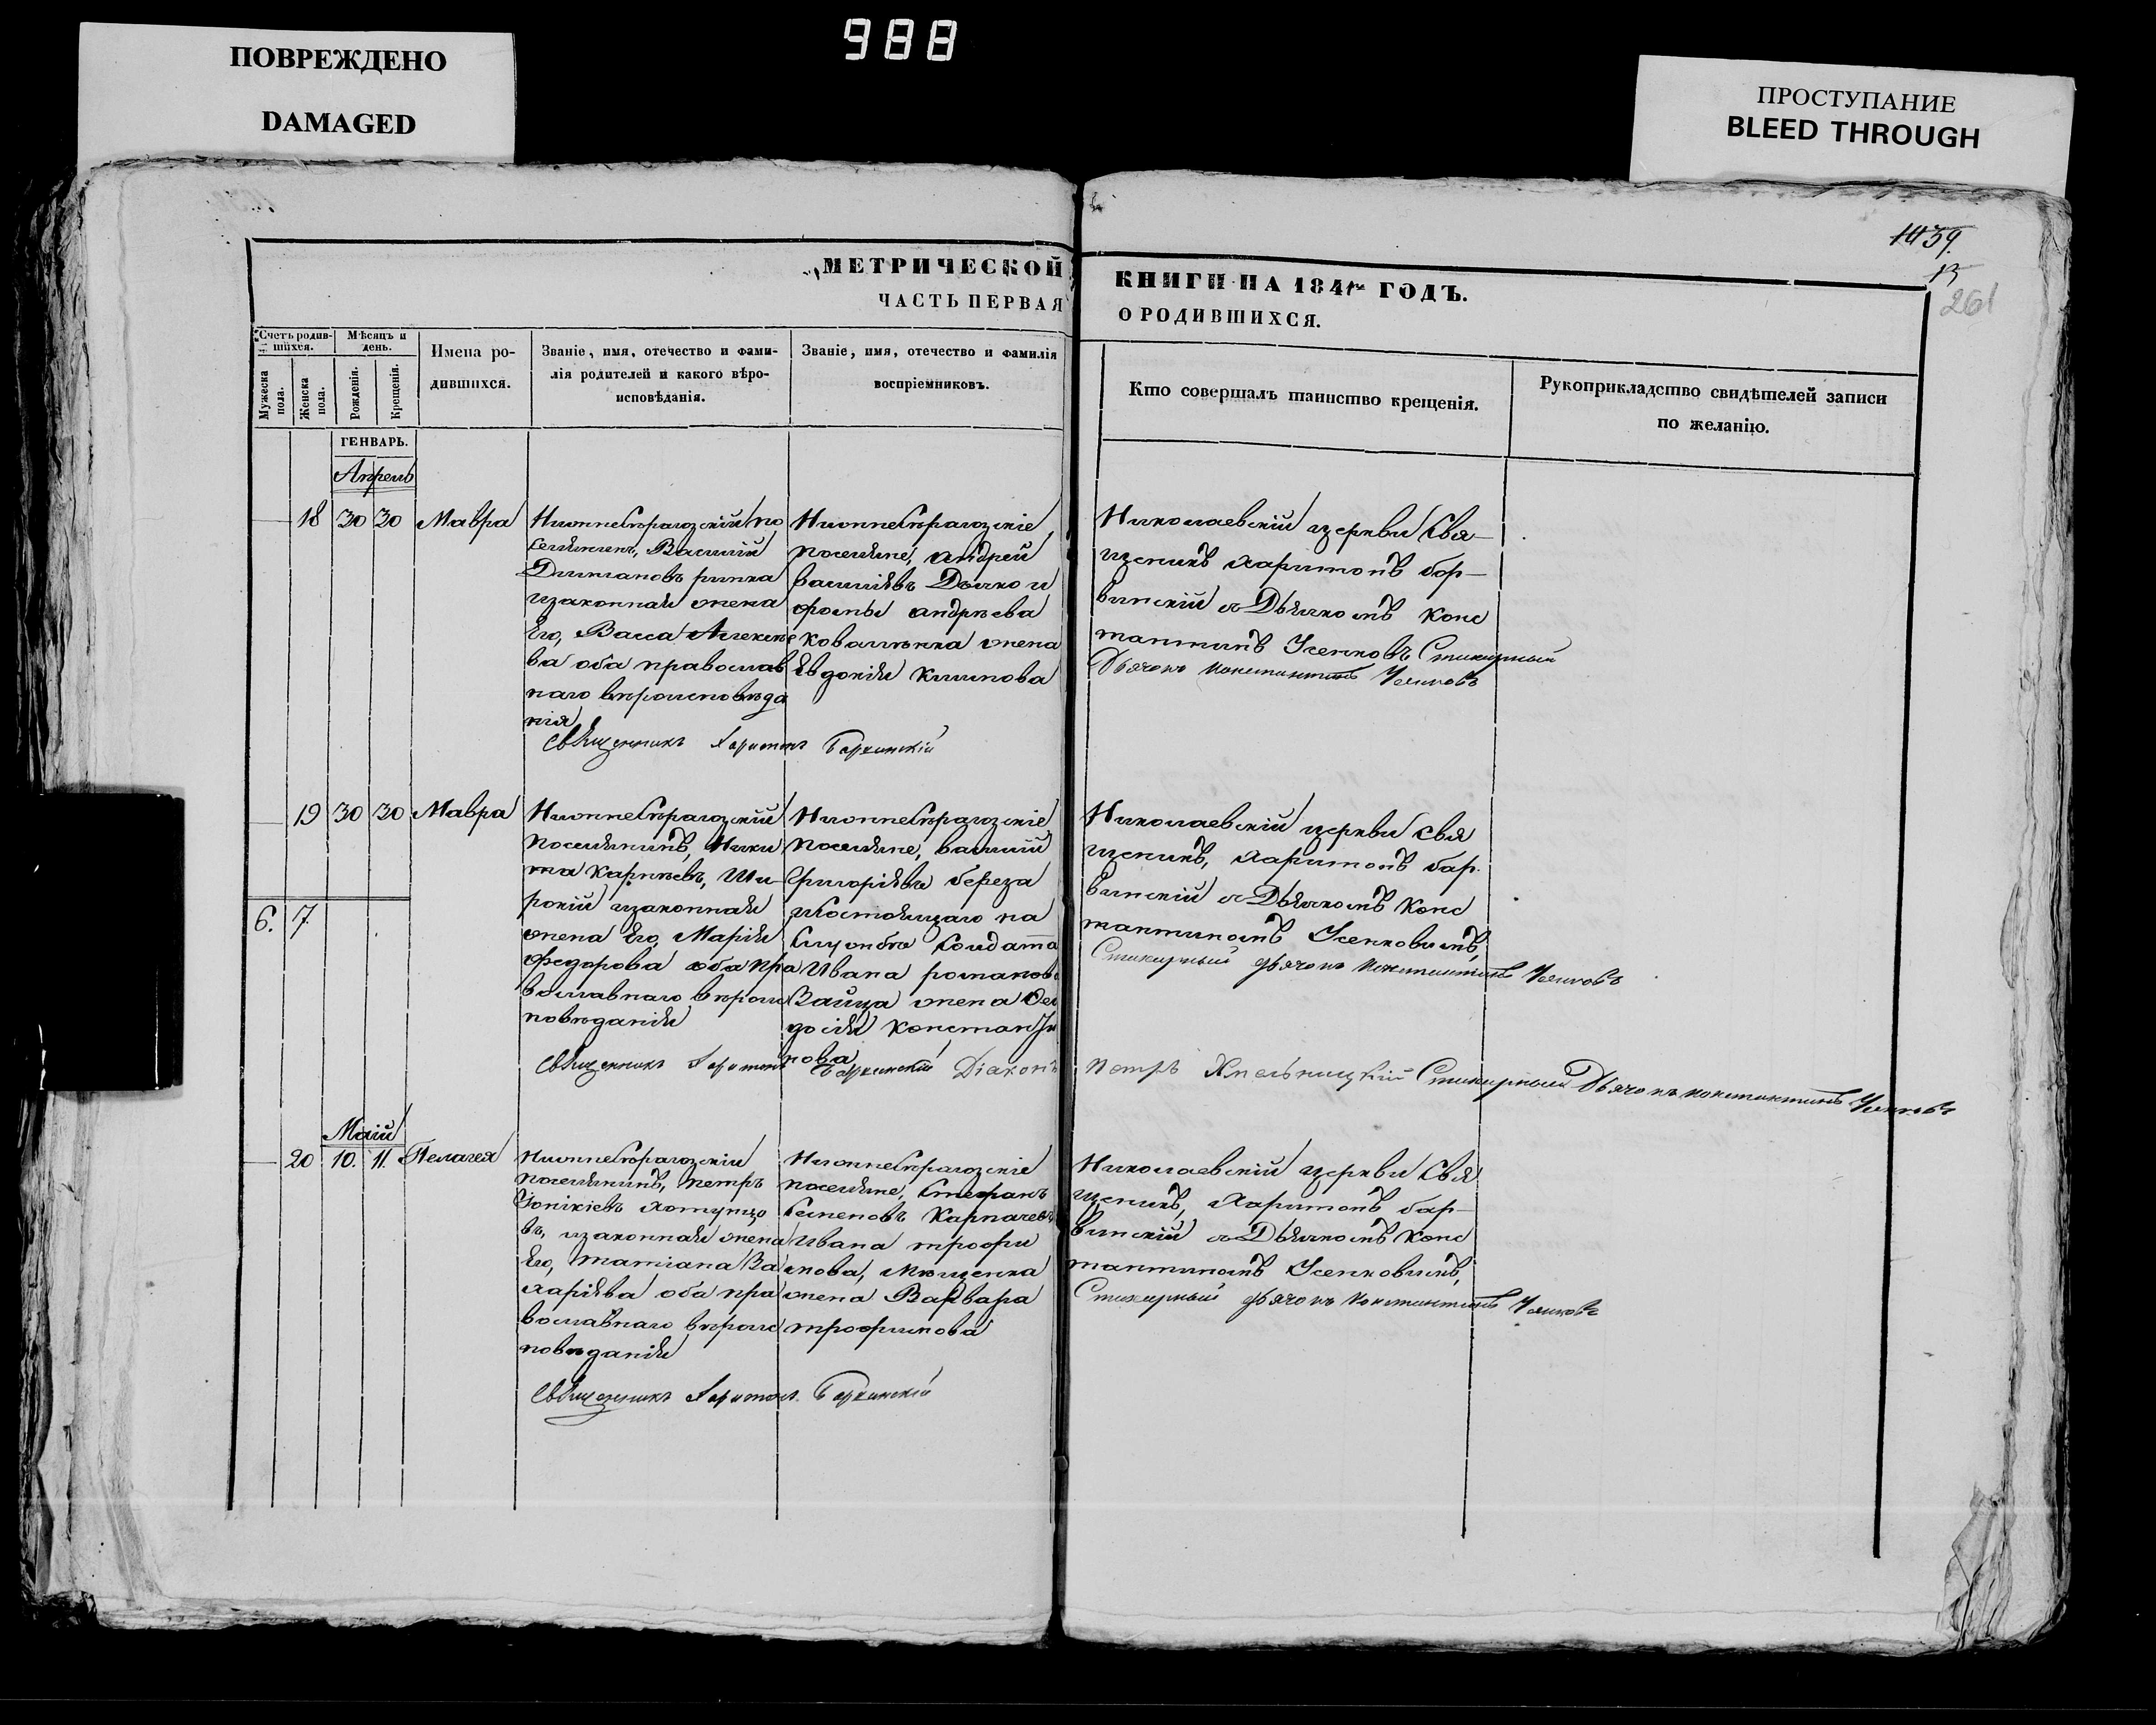 988
ПОВРЕЖДЕНО
DAMAGED
ПРОСТУПАНИЕ
BLEED THROUGH
1039.
13
261
МЕТРИЧЕСКОЙ КНИГИ НА 1841й ГОДЪ.
ЧАСТЬ ПЕРВАЯ О РОДИВШИХСЯ.
Счетъ родившихся.
Мужеска пола.
Женска пола.
Мѣсяцъ и день.
Рожденія.
Крещенія.
Имена родившихся.
Званіе, имя, отечество и фами-
лія родителей и какого вѣро-
исповѣданія.
Званіе, имя, отечество и фамилія
воспріемниковъ.
Кто совершалъ таинство крещенія.
Рукоприкладство свидѣтелей записи
по желанію.
ГЕНВАРЬ.
Апрель
18 30 30 Мавра
Нижнесѣрагозскій по
селянинъ, Василій
изаконная жена
Его, Васса Алексѣе
ва оба православ
наго вѣроисповѣда
нія
Нижнесѣрагозскіе
поселяне, андрей
василіевъ Дьячко и
фомы андрѣева
Ковалѣнка жена
Евдокія Климова
Николаевскій церкви Свя-
щеникъ Харитонъ бар-
винскій з Дьячкомъ Конс
тантинъ Усенковъ Стихарный
Дьячокъ Константинъ Усенковъ
Священникъ Харитонъ Барвинскій
19 30 30 Мавра
Нижнесѣрагозскій
поселянинъ, Ники
та Карпѣевъ, Ши-
рокій изаконная
жена Его, Марія
федорова оба пра
вославнаго вѣроис
повѣданія
Нижнесѣрагозскіе
поселяне, василій
Григоріевъ береза
исостоящаго на
Службѣ Солдата
Ивана романова
Зайца жена Фео
досія Константи
нова
Николаевскій церкви свя
щеникъ, Харитонъ бар-
винскій з Дьячкомъ Конс
тантиномъ Усенковимъ,
Стихарный дьячокъ Константинъ Усенковъ
6. 7
Священникъ Харитонъ Барвинскій Діаконъ Петръ Хмельницкій Стихарный Дьячокъ Константинъ Усенковъ
Маій
20 10. 11. Пелагея
Нижнесѣрагозскій
поселянинъ, петръ
Іоникіевъ
въ, изаконная жена
Его, татіана За
харіева оба пра
вославнаго вѣроис
повѣданія
Нижнесѣрагозскіе
поселяне, Стефанъ
Семеновъ Карпачевъ
Ивана трофи
мова, Мищенка
жена Варвара
трофимова
Николаевскій церкви Свя
щеникъ, Харитонъ бар-
винскій з Дьячкомъ Конс
тантиномъ Усенковимъ,
Стихарный дьячокъ Константинъ Усенковъ
Священникъ Харитонъ Барвинскій